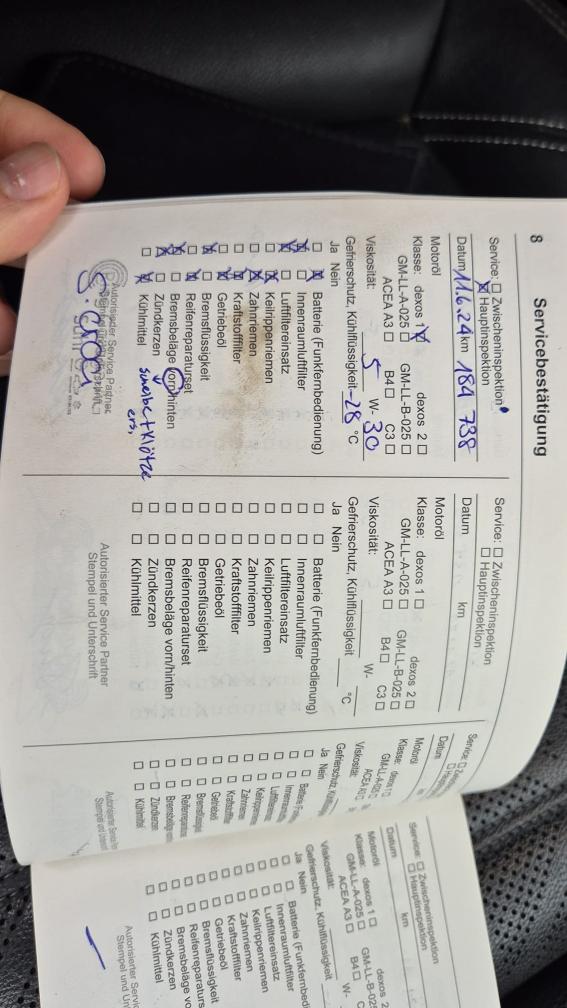 8
Servicebestätigung
Service: ☐ Zwischeninspektion
☒ Hauptinspektion
Datum 11.6.24 km 184 738
Motoröl
Klasse: dexos 1 ☒ dexos 2 ☐
GM-LL-A-025 ☐ GM-LL-B-025 ☐
ACEA A3 ☐ B4 ☐ C3 ☐
Viskosität: 5 W- 30
Gefrierschutz, Kühlflüssigkeit -28 °C
Ja Nein
☐ ☒ Batterie (Funkfernbedienung)
☒ ☐ Innenraumluftfilter
☒ ☐ Luftfiltereinsatz
☐ ☒ Keilrippenriemen
☐ ☒ Zahnriemen
☐ ☒ Kraftstofffilter
☐ ☒ Getriebeöl
☒ ☐ Bremsflüssigkeit
☐ ☒ Reifenreparaturset
☒ ☐ Bremsbeläge vorn/hinten
☒ ☐ Zündkerzen
☐ ☒ Kühlmittel
Scheibe + Klötze
ers.
Autorisierter Service Partner
Service: ☐ Zwischeninspektion
☐ Hauptinspektion
Datum km
Motoröl
Klasse: dexos 1 ☐ dexos 2 ☐
GM-LL-A-025 ☐ GM-LL-B-025 ☐
ACEA A3 ☐ B4 ☐ C3 ☐
Viskosität: W-
Gefrierschutz, Kühlflüssigkeit °C
Ja Nein
☐ ☐ Batterie (Funkfernbedienung)
☐ ☐ Innenraumluftfilter
☐ ☐ Luftfiltereinsatz
☐ ☐ Keilrippenriemen
☐ ☐ Zahnriemen
☐ ☐ Kraftstofffilter
☐ ☐ Getriebeöl
☐ ☐ Bremsflüssigkeit
☐ ☐ Reifenreparaturset
☐ ☐ Bremsbeläge vorn/hinten
☐ ☐ Zündkerzen
☐ ☐ Kühlmittel
Autorisierter Service Partner
Stempel und Unterschrift
Service: ☐
Datum
Motoröl
Klasse: dexos 1
GM-LL-A-025
ACEA A3
Viskosität:
Gefrierschutz,
Ja Nein
☐ ☐ Batterie
☐ ☐
☐ ☐
☐ ☐
☐ ☐ Zahnriemen
☐ ☐ Kraftstofffilter
☐ ☐ Getriebeöl
☐ ☐
☐ ☐
☐ ☐ Bremsbeläge
☐ ☐ Zündkerzen
☐ ☐ Kühlmittel
Autorisierter
Stempel und
Service: ☐ Zwischeninspektion
☐ Hauptinspektion
Datum km
Motoröl
Klasse: dexos 1 ☐ dexos 2
GM-LL-A-025 ☐ GM-LL-B-02
ACEA A3 ☐ B4 ☐ C
Viskosität: W-
Gefrierschutz, Kühlflüssigkeit
Ja Nein
☐ ☐ Batterie (Funkfernbedi
☐ ☐ Innenraumluftfilter
☐ ☐ Luftfiltereinsatz
☐ ☐ Keilrippenriemen
☐ ☐ Zahnriemen
☐ ☐ Kraftstofffilter
☐ ☐ Getriebeöl
☐ ☐ Bremsflüssigkeit
☐ ☐ Reifenreparaturs
☐ ☐ Bremsbeläge vo
☐ ☐ Zündkerzen
☐ ☐ Kühlmittel
Autorisierter Servic
Stempel und Un